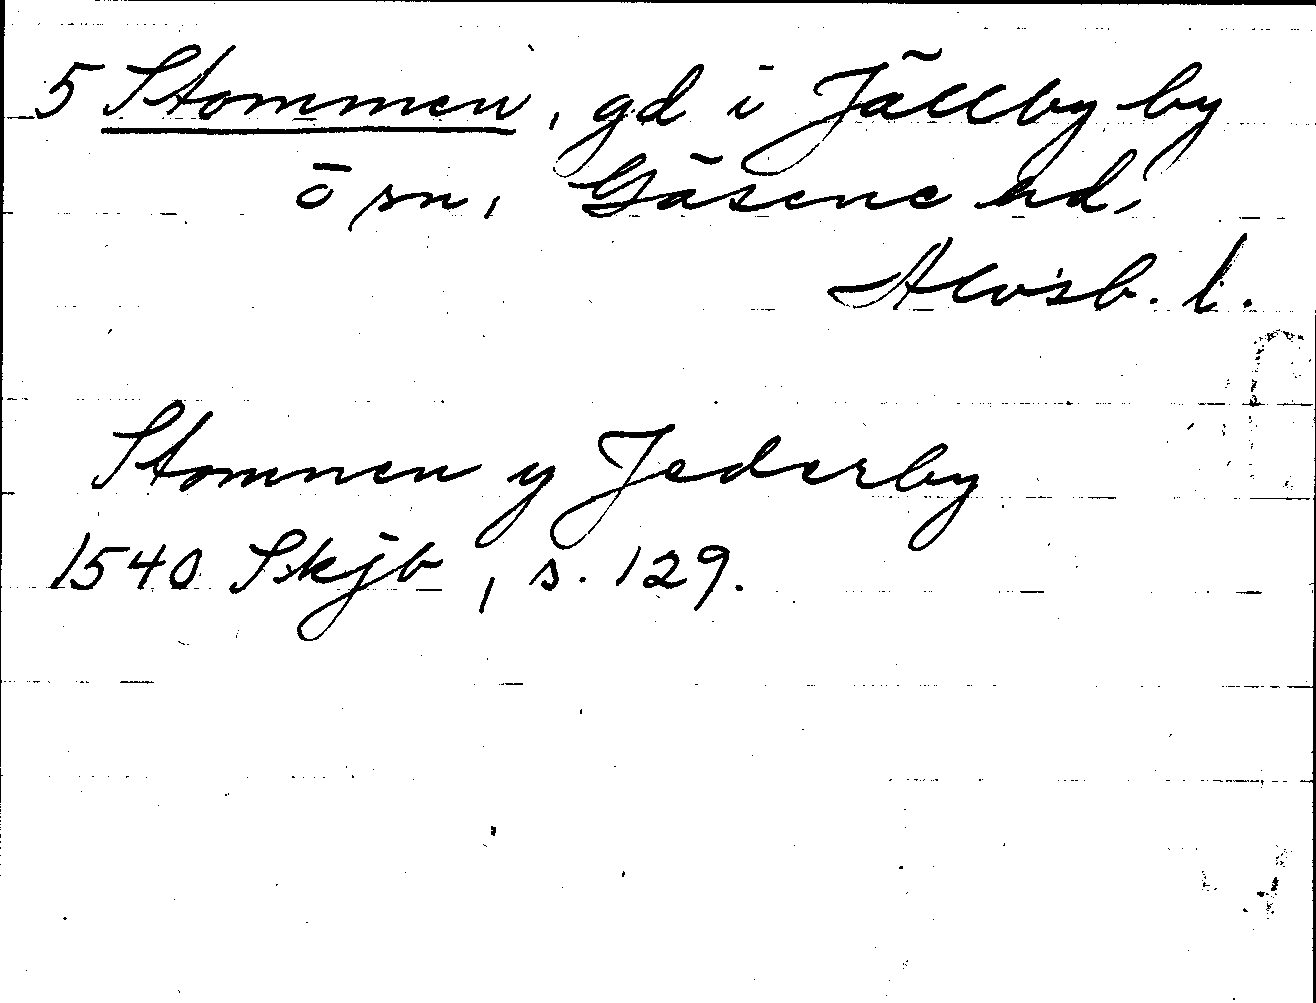 5 Stommen, gd i Jällby by
o sn, Gäsene hd,
Älvsb. l.
Stomnen y Jederby
1540 Skjb, s. 129.